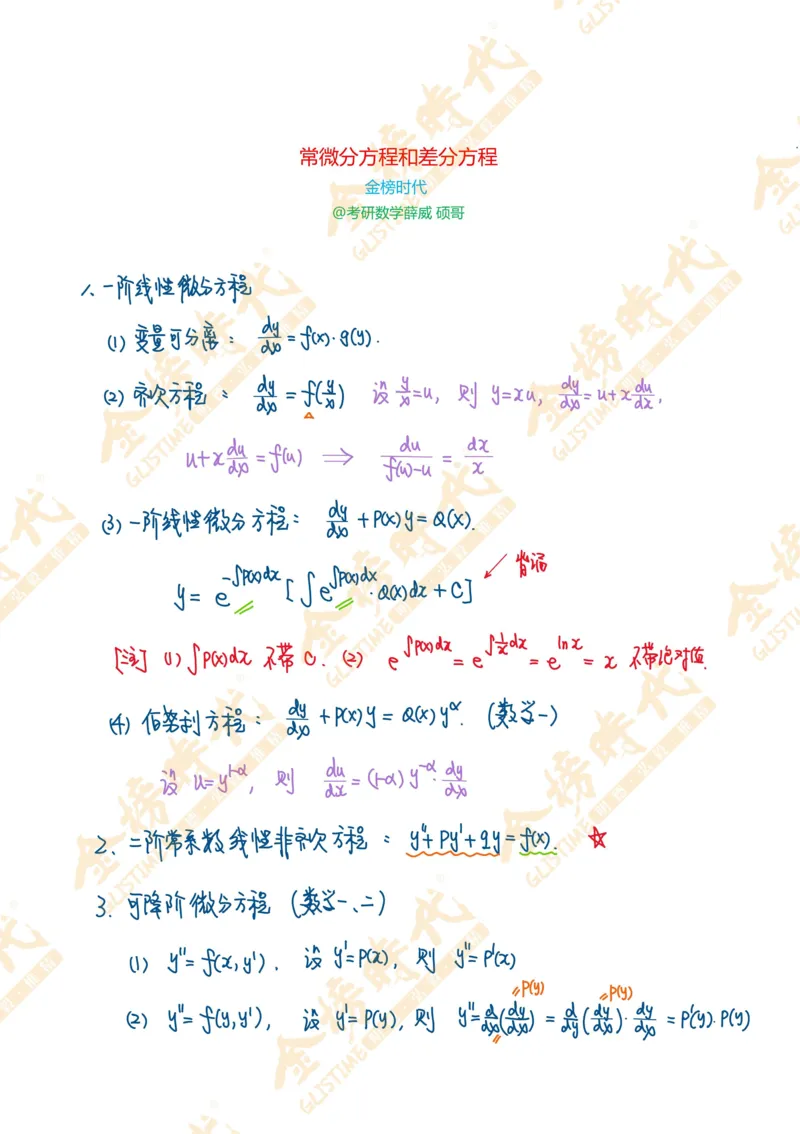 常微分方程和差分方程
金榜时代
@考研数学薛威 硕哥
1、一阶线性微分方程
(1) 变量可分离： dy/dx = f(x)·g(y).
(2) 齐次方程： dy/dx = f(y/x) 设 y/x=u, 则 y=xu, dy/dx = u+x du/dx,
u+x du/dx = f(u) ⟹ du/(f(u)-u) = dx/x
(3) 一阶线性微分方程： dy/dx + P(x)y = Q(x).
y = e^(-∫P(x)dx) [∫e^(∫P(x)dx)·Q(x)dx + C] 背诵
[注] (1) ∫P(x)dx 不带C. (2) e^(∫P(x)dx) = e^(∫1/x dx) = e^(ln x) = x 不带绝对值.
(4) 伯努利方程： dy/dx + P(x)y = Q(x)y^α. (数学一)
设 u=y^(1-α), 则 du/dx = (1-α)y^(-α)·dy/dx
2、二阶常系数线性非齐次方程： y''+Py'+qy = f(x). ☆
3. 可降阶微分方程 (数学一、二)
(1) y''=f(x,y'). 设 y'=P(x), 则 y''=P'(x)
=P(y) =P(y)
(2) y''=f(y,y'), 设 y'=P(y), 则 y''=d/dx(dy/dx) = d/dy(dy/dx)·dy/dx = P'(y)·P(y)
金榜時代
GLISTIME